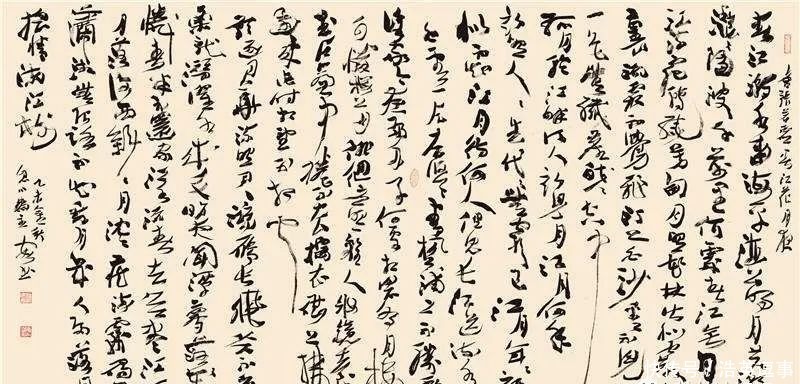 書張若虛春江花月夜
春江潮水連海平海上明月共
灩灩隨波千萬里何處春江無月
江流宛轉繞芳甸月照花林皆似霰空
裏流霜不覺飛汀上白沙看不見
一色無纖塵皎皎空中
孤月輪江畔何人初見月江月何年
初照人人生代代無窮已江月年年
似不知江月待何人但見長江送流水
白雲一片去悠悠青楓浦上不勝愁
誰家今夜扁舟子何處相思明月樓
可憐樓上月徘徊應照離人妝鏡臺
玉戶簾中捲不去擣衣砧上拂
還來此時相望不相聞
願逐月華流照君鴻雁長飛光不度
魚龍潛躍水成文昨夜閒潭夢落花
可憐春半不還家江水流春去欲盡江
月落復西斜斜月沉沉藏海霧碣石
瀟湘無限路不知乘月幾人歸落月
搖情滿江樹
乙未金秋